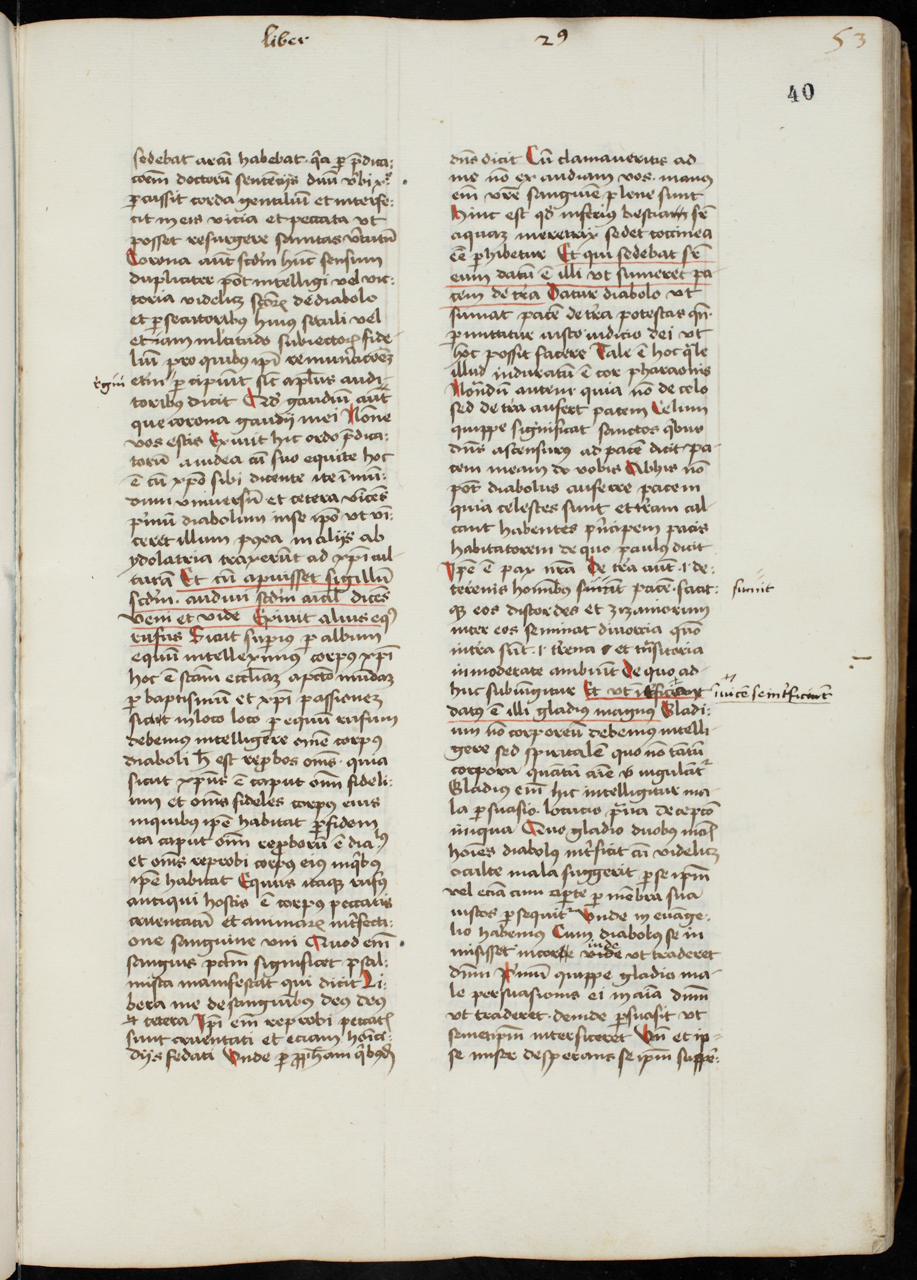 liber
29
53
40
sedebat arcū habebat. q̄a p̱ p̄dica:
coem̄ doctorū sentētijs diuīi v̄bi
p̱cussit corda gentiliū et interfe:
cit in eis vicia et peccata vt
posset resurgere sanitas v̄tutū
Corona aūt scd̄m hūc sensum
dupliciter pōt intelligi vel vic:
toria videlicꝫ de diabolo
et p̱secutoribus huius seculi vel
etiam m̄ltitudo subiectoꝝ fide
liū pro quibus ip̄i remun̄acōeꝫ
etn̄i p̱cipiūt sic̄ ap̄lus audi
toribus dicit gaudiū aūt
que corona gaudij mei Nōne
vos estis Exiuit hic ordo p̄dica:
torū a iudea cū suo equite hoc
ē cū xp̄o sibi dicente ite ī mū:
dum vniuersū et cetera vīces
p̄mū diabolum in se ip̄o vt vī:
ceret illum p̱ꝯea in alijs ab
ydolatria traxerūt ad xp̄i cul
turā Et cū apuisset sigillū
scd̄m. audiui scd̄m aīal dicēs
veni et vide Exiuit alius eqꝰ
rufus Sicut sup̱ius p̱ album
equū intellexīmus corpus xp̄i
hoc ē sc̄am ecc̄liaꝫ mūdaꝫ
p̱ baptismū et xp̄i passioneꝫ
sicut in loco p̱ equū rufum
debemus intelligere om̄e corpꝰ
diaboli h̄ est rep̱bos om̄s. quia
sicut xp̄us ē caput om̄i fideli:
um et om̄s fideles corpus eius
in quibus ip̄e habitat p̱ fidem
ita caput om̄i rep̱borū ē diaᵇꝰ
et om̄s reprobi corpus eius in q̄bus
ip̄e habitat Equus itaqꝫ rufꝰ
antiqui hostis ē corpꝰ peccatis
cruentatū et animaꝝ int̄fecti:
one sanguine vni Quod eīm
sanguis pc̄tm̄ significet psal:
mista manifestat qui dicit Li:
bera me de sanguibus deꝰ deꝰ
et cetera Ip̄i eīm reprobi peccat̄
sunt cruentati et eciam homīci:
dijs fedati Vnde p̱ ꝓph̄am q̄busd̄
rgnū
dn̄s dicit Cū clamaueritis ad
me nō exaudiam vos. manꝰ
eīm vr̄e sanguīe plene sunt
Hinc est qd̄ inferius bestiam sr̄
aquaꝫ meretrix sedet coccinea
eē p̱hibetur Et qui sedebat sr̄
eum datū ē illi vt sumeret pa
cem de t̄ra Datur diabolo vt
sumat pacē de t̄ra potestas qn̄
p̱mittatur iusto iudicio dei vt
hoc possit facere Tale ē hoc q̄le
illud induratū ē cor pharaonis
Notādū autem quia nō de celo
sed de t̄ra aufert pacem Celum
quippe significat sanctos q̄bus
dn̄s ascensurꝰ ad pacē dicit pa
cem meam do vobis Ab his nō
pōt diabolus auferre pacem
quia celestes sunt et terram cal
cant habentes p̄ncipem pacis
habitatorem de quo paulus dicit
Ip̄e ē pax nr̄a De t̄ra aūt .i. de:
terenis homībꝰ pacē. facit:
qꝫ eos discordes et zizaniorum
inter eos seminat diuorcia quō
intra sūt .i. trena et trāsitoria
inmoderate ambiūt De quo ad-
huc subiūgitur Et vt
datꝰ ē illi gladius magnus Gladi:
um nō corporeū debemus intelli
gere sed spiritalē quo nō tātū
corpora quātū aīe iugulāt
Gladius eīm hic intelligitur ma-
la p̱suasio. locucio p̄ua decepto
iniqua Quo gladio duobus modꝭ
hoīes diabolꝰ int̄ficit cū videlicꝫ
oculte mala suggerit p̱ se ip̄m
vel eciā cum ap̱te p̱ mēbra sua
iustos p̱sequit̄ Vnde in euāge:
lio habemus Cum diabolus se in
misisset in corpꝰ iude vt traderet
dn̄m P̄mū quippe gladio ma-
le persuasionis ei maīa dn̄m
vt traderet. deinde p̱suasit vt
semetip̄m interficeret Vn̄ et ip-
se miser desperans se ip̄m susp̄e:
sumit
inuicē se int̄ficiant